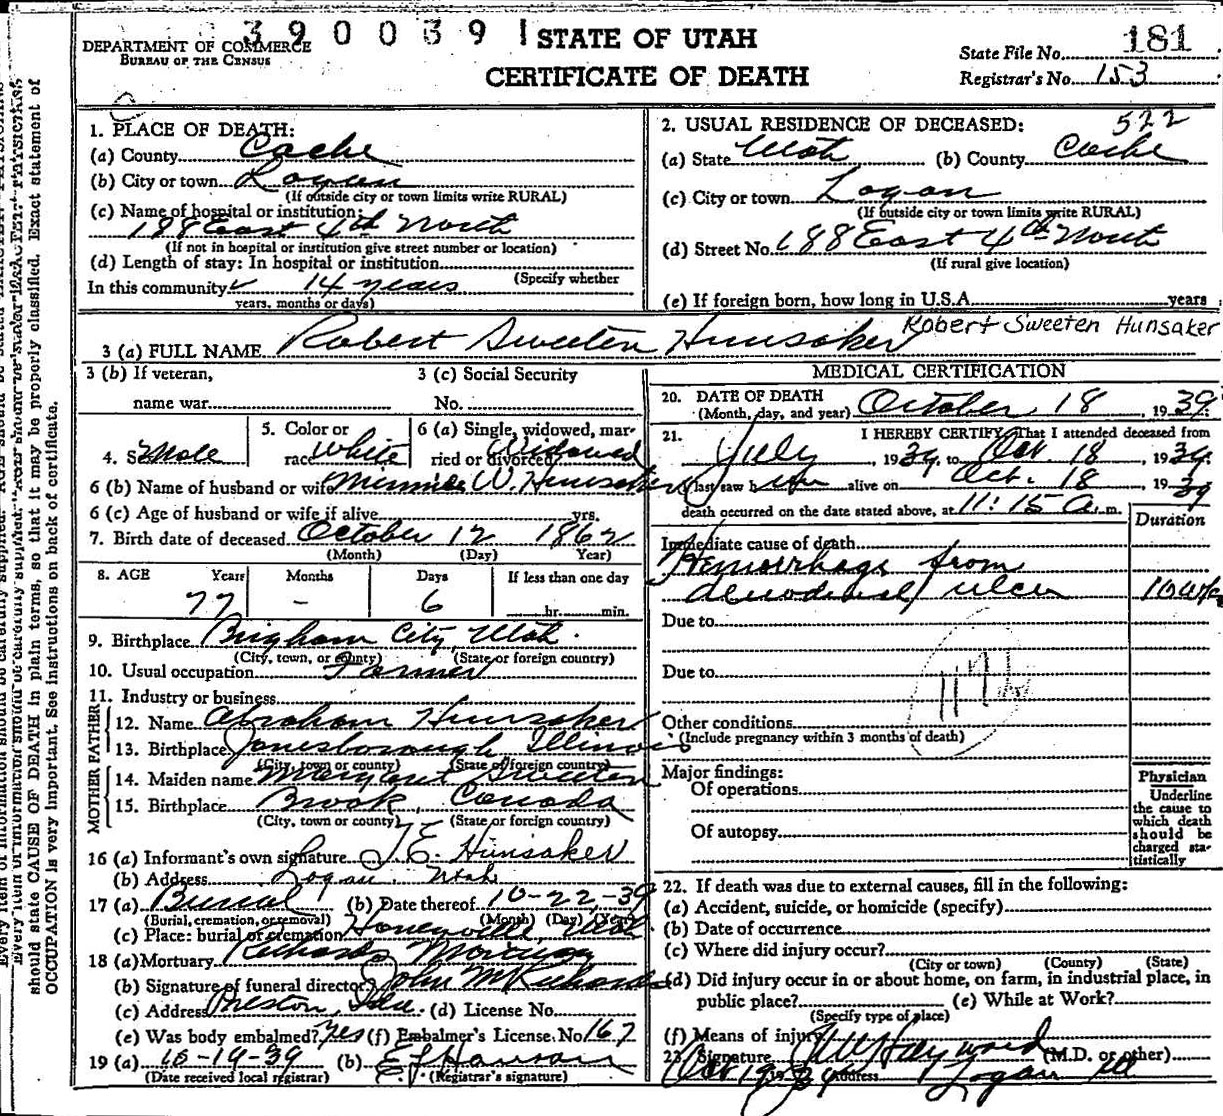 390039 1
STATE OF UTAH
CERTIFICATE OF DEATH
DEPARTMENT OF COMMERCE
BUREAU OF THE CENSUS
State File No. 181
Registrar's No. 153
1. PLACE OF DEATH:
(a) County Cache
(b) City or town Logan
(If outside city or town limits write RURAL)
(c) Name of hospital or institution:
188 East 4th North
(If not in hospital or institution give street number or location)
(d) Length of stay: In hospital or institution
(Specify whether
In this community 14 years
years, months or days)
522
2. USUAL RESIDENCE OF DECEASED:
(a) State Utah (b) County Cache
(c) City or town Logan
(If outside city or town limits write RURAL)
(d) Street No. 188 East 4th North
(If rural give location)
(e) If foreign born, how long in U.S.A. years
3 (a) FULL NAME Robert Sweeten Hunsaker Robert Sweeten Hunsaker
3 (b) If veteran,
name war
3 (c) Social Security
No.
4. Sex Male
5. Color or
race White
6 (a) Single, widowed, mar-
ried or divorced Widowed
6 (b) Name of husband or wife Minnie W. Hunsaker
6 (c) Age of husband or wife if alive yrs.
7. Birth date of deceased October 12 1862
(Month) (Day) Year)
8. AGE Years Months Days If less than one day
77 - 6 hr. min.
9. Birthplace Brigham City, Utah.
(City, town, or county) (State or foreign country)
10. Usual occupation Farmer
11. Industry or business
FATHER
12. Name Abraham Hunsaker
13. Birthplace Jonesborough Illinois
(City, town or county) (State of foreign country)
MOTHER
14. Maiden name Margaret Sweeten
15. Birthplace Brook, Canada
(City, town or county) (State or foreign country)
16 (a) Informant's own signature J. E. Hunsaker
(b) Address Logan, Utah
17 (a) Burial (b) Date thereof 10-22-39
(Burial, cremation, or removal) (Month) (Day) (Year)
(c) Place: burial or cremation Honeyville, Utah
18 (a) Mortuary Richards Mortuary
(b) Signature of funeral director John M Richards
(c) Address Preston, Ida. (d) License No.
(e) Was body embalmed? Yes (f) Embalmer's License No 167
19 (a) 10-19-39 (b)
(Date received local registrar) (Registrar's signature)
MEDICAL CERTIFICATION
20. DATE OF DEATH
(Month, day, and year) October 18, 1939
21. I HEREBY CERTIFY, That I attended deceased from
July, 1939, to Oct. 18, 1939
I last saw him alive on Oct. 18, 1939
death occurred on the date stated above, at 11:15 A.m.
Duration
Immediate cause of death
Hemorrhage from
duodenal ulcer
Due to
Due to
Other conditions
(Include pregnancy within 3 months of death)
Major findings:
Of operations
Of autopsy
Physician
Underline
the cause to
which death
should be
charged sta-
tistically
22. If death was due to external causes, fill in the following:
(a) Accident, suicide, or homicide (specify)
(b) Date of occurrence
(c) Where did injury occur?
(City or town) (County) (State)
(d) Did injury occur in or about home, on farm, in industrial place, in
public place? (e) While at Work?
(Specify type of place)
(f) Means of injury
23. Signature Hayward (M.D. or other)
Oct 19 39 Address Logan
should state CAUSE OF DEATH in plain terms, so that it may be properly classified. Exact statement of
OCCUPATION is very important. See instructions on back of certificate.